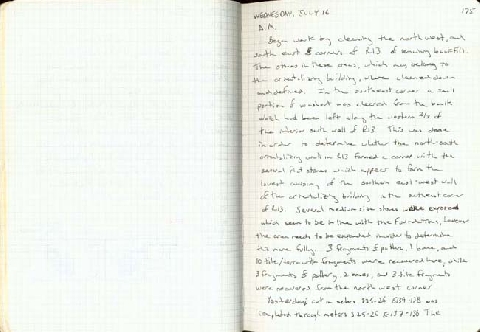 WEDNESDAY, JULY 16
175
B.M.
Began work by cleaning the northwest, and
south east corners of R13 of remaining backfill.
The stones in these areas, which may belong to
the orientalizing building, were cleaned down
and defined. In the southeast corner a small
portion of was cleared from the
which had been left along the
the interior south wall of R13. This was done
in order to determine whether the north-south
orientalizing wall in R13 formed a corner with the
several flat stones which appear to form the
lowest coursing of the southern east-west wall
of the orientalizing building in the southeast corner
of R13. Several medium size stones were exposed
which seem to be in line with the foundations, however
the area needs to be expanded in order to determine
this more fully. 3 fragments of pottery, 1 bone, and
10 tile/ fragments were recovered here, while
3 fragments of pottery, 2 bones, and 3 tile fragments
were recovered from the north west corner.
Yesterday's cut in meters 325-26 was
completed through meters 325-26 The